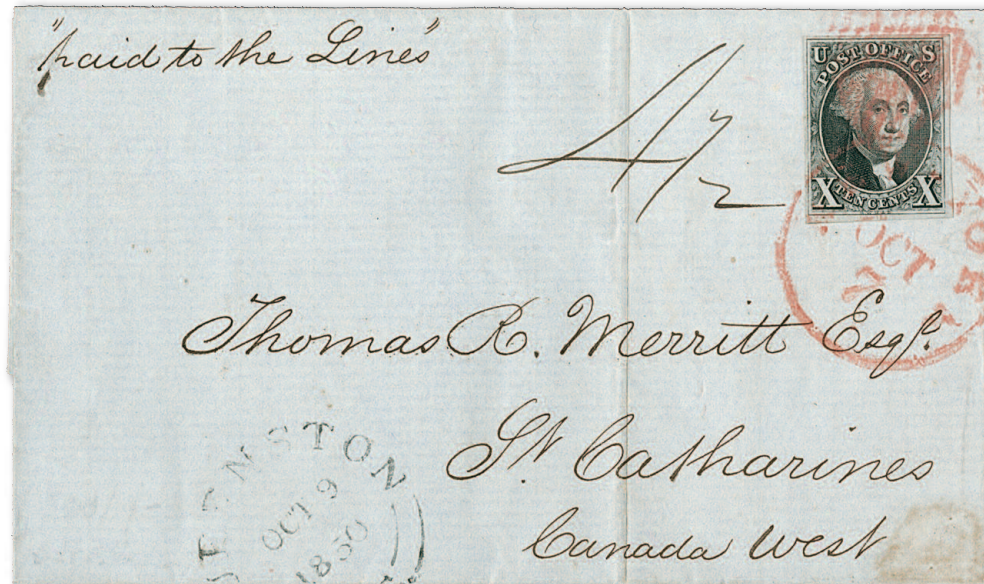 "paid to the Lines"
4/2
U S
POST OFFICE
X TEN CENTS X
OCT
Thomas R. Merritt Esqr.
St. Catharines
Canada West
OCT 9
1850